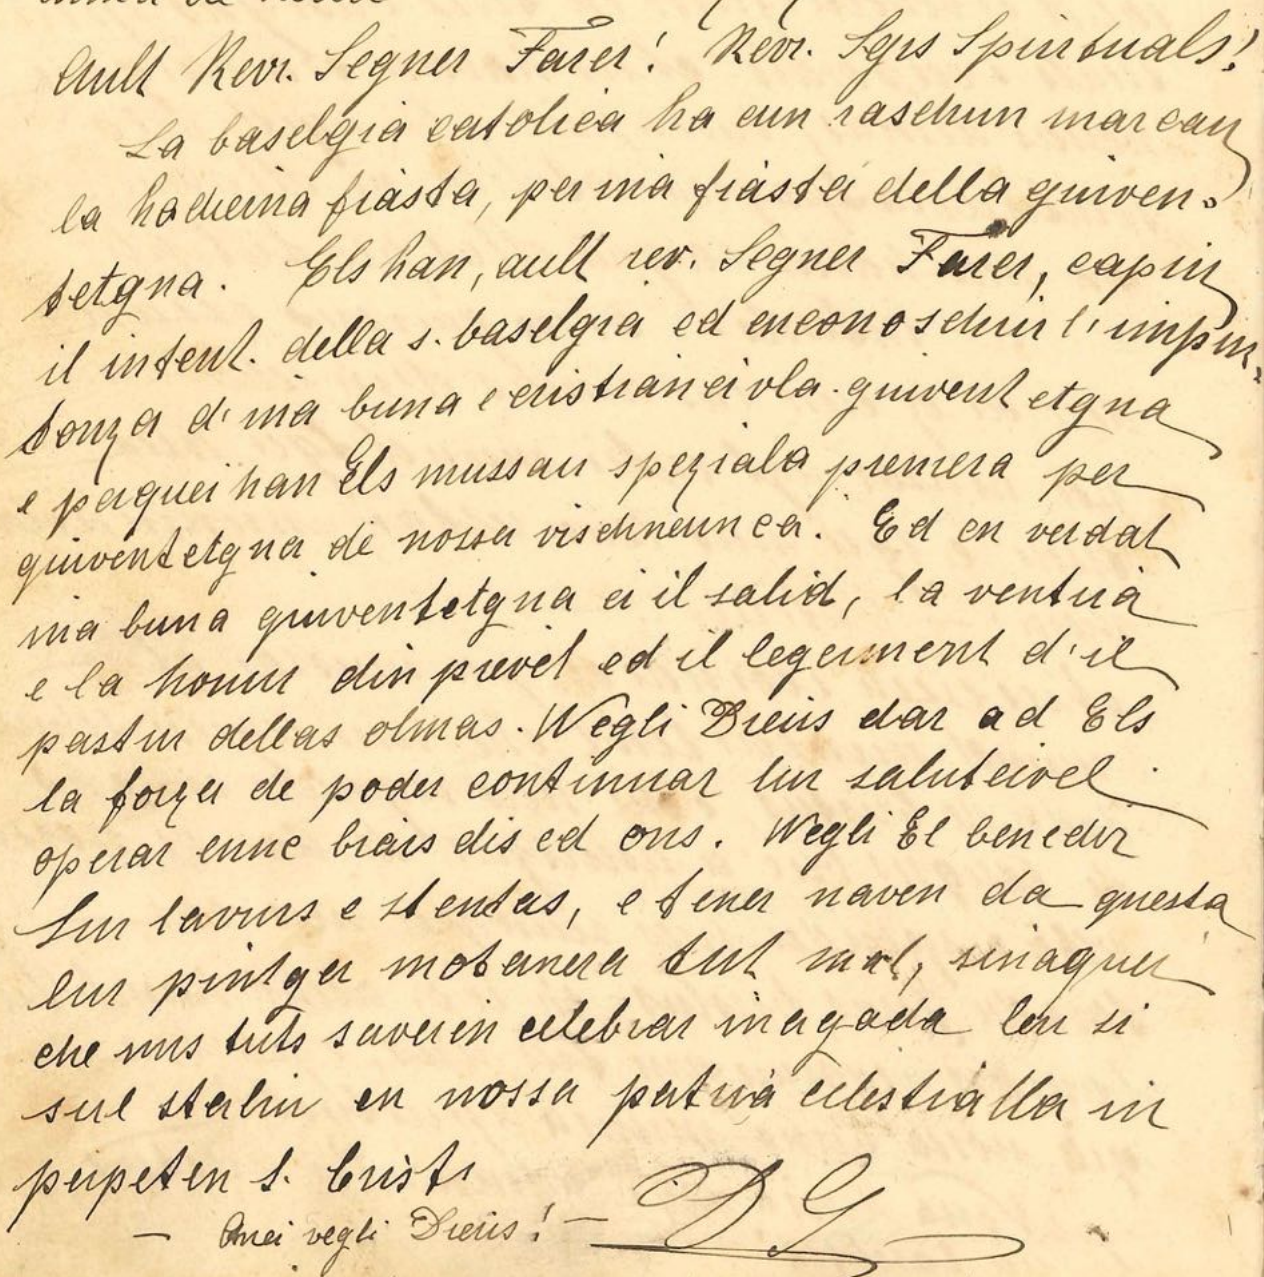 Ault Revr. Segner Farer! Revr. Sgrs Spirituals!
La baselgia catolica ha cun raschun marcau
la hodierna fiasta, per ina fiasta della giuven-
tetgna. Els han, ault rev. Segner Farer, capiu
il intent. della s. baselgia ed enconoschiu l'impur-
tonza d'ina buna e cristianeivla giuventetgna
e perquei han Els mussau speziala premura per
giuventetgna de nossa vischneunca. Ed en verdat
ina buna giuventetgna ei il salid, la ventira
e la honur din pievel ed il legerment d'il
pastur dellas olmas. Wegli Dieus dar ad Els
la forza de poder continuar lur saluteivel
operar enne biars dis ed ons. Wegli El benedir
lur lavurs e stentas, e tener naven da questa
lur pintga motanera tut mal, sinaquei
che nus tuts saveien celebrar inagada leu si
sul steliu en nossa patria celestialla in
perpeten s. Crist.
— Quei vegli Dieus! — D G